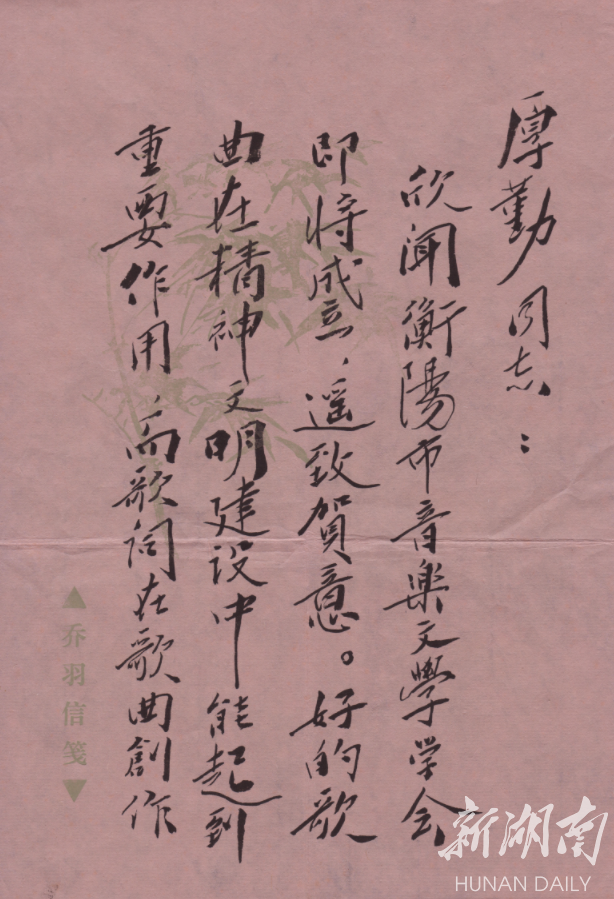 厚勤同志：
欣闻衡陽市音樂文學学会
即将成立，遥致賀意。好的歌
曲在精神文明建设中能起到
重要作用，而歌词在歌曲創作
▲乔羽信笺▼
新湖南
HUNAN DAILY